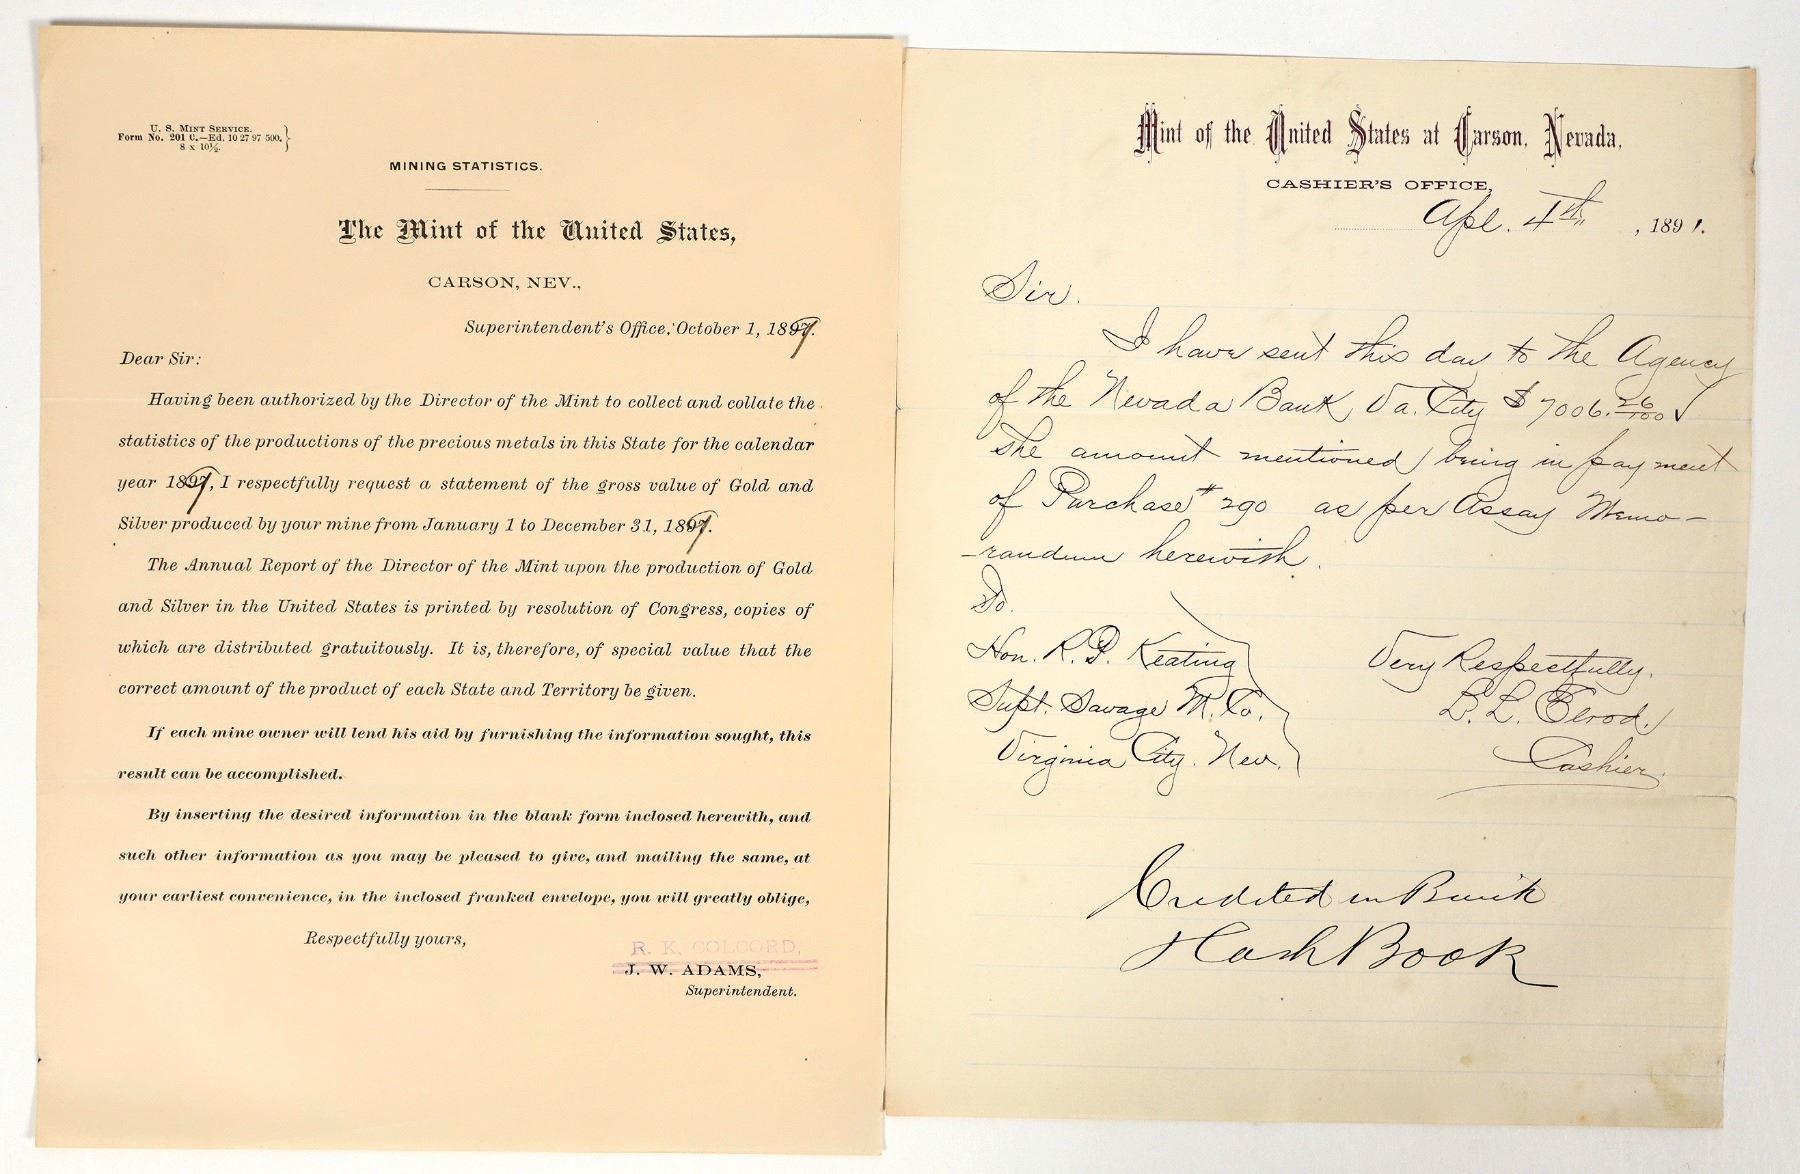 U. S. MINT SERVICE.
Form No. 201 C.—Ed. 10 27 97 500.
8 x 10½.
MINING STATISTICS.
The Mint of the United States,
CARSON, NEV.,
Superintendent's Office, October 1, 1897.
Dear Sir:
Having been authorized by the Director of the Mint to collect and collate the
statistics of the productions of the precious metals in this State for the calendar
year 1897, I respectfully request a statement of the gross value of Gold and
Silver produced by your mine from January 1 to December 31, 1897.
The Annual Report of the Director of the Mint upon the production of Gold
and Silver in the United States is printed by resolution of Congress, copies of
which are distributed gratuitously. It is, therefore, of special value that the
correct amount of the product of each State and Territory be given.
If each mine owner will lend his aid by furnishing the information sought, this
result can be accomplished.
By inserting the desired information in the blank form inclosed herewith, and
such other information as you may be pleased to give, and mailing the same, at
your earliest convenience, in the inclosed franked envelope, you will greatly oblige,
Respectfully yours,
R. K. COLCORD,
J. W. ADAMS,
Superintendent.
Mint of the United States at Carson, Nevada,
CASHIER'S OFFICE,
Apl. 4th, 1891.
Sir.
I have sent this day to the Agency
of the Nevada Bank, Va. City $7006. 26/100
the amount mentioned being in payment
of Purchase # 290 as per Assay Memo-
-randum herewith.
To.
Hon. R. P. Keating
Supt. Savage M. Co.
Virginia City. Nev.
Very Respectfully.
Elrod.
Cashier.
Credited in
Cash Book